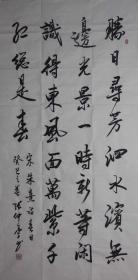 勝日尋芳泗水濱無
邊光景一時新等閒
識得東風面萬紫千
紅總是春
宋朱熹詩春日
癸巳之夏張仲亭